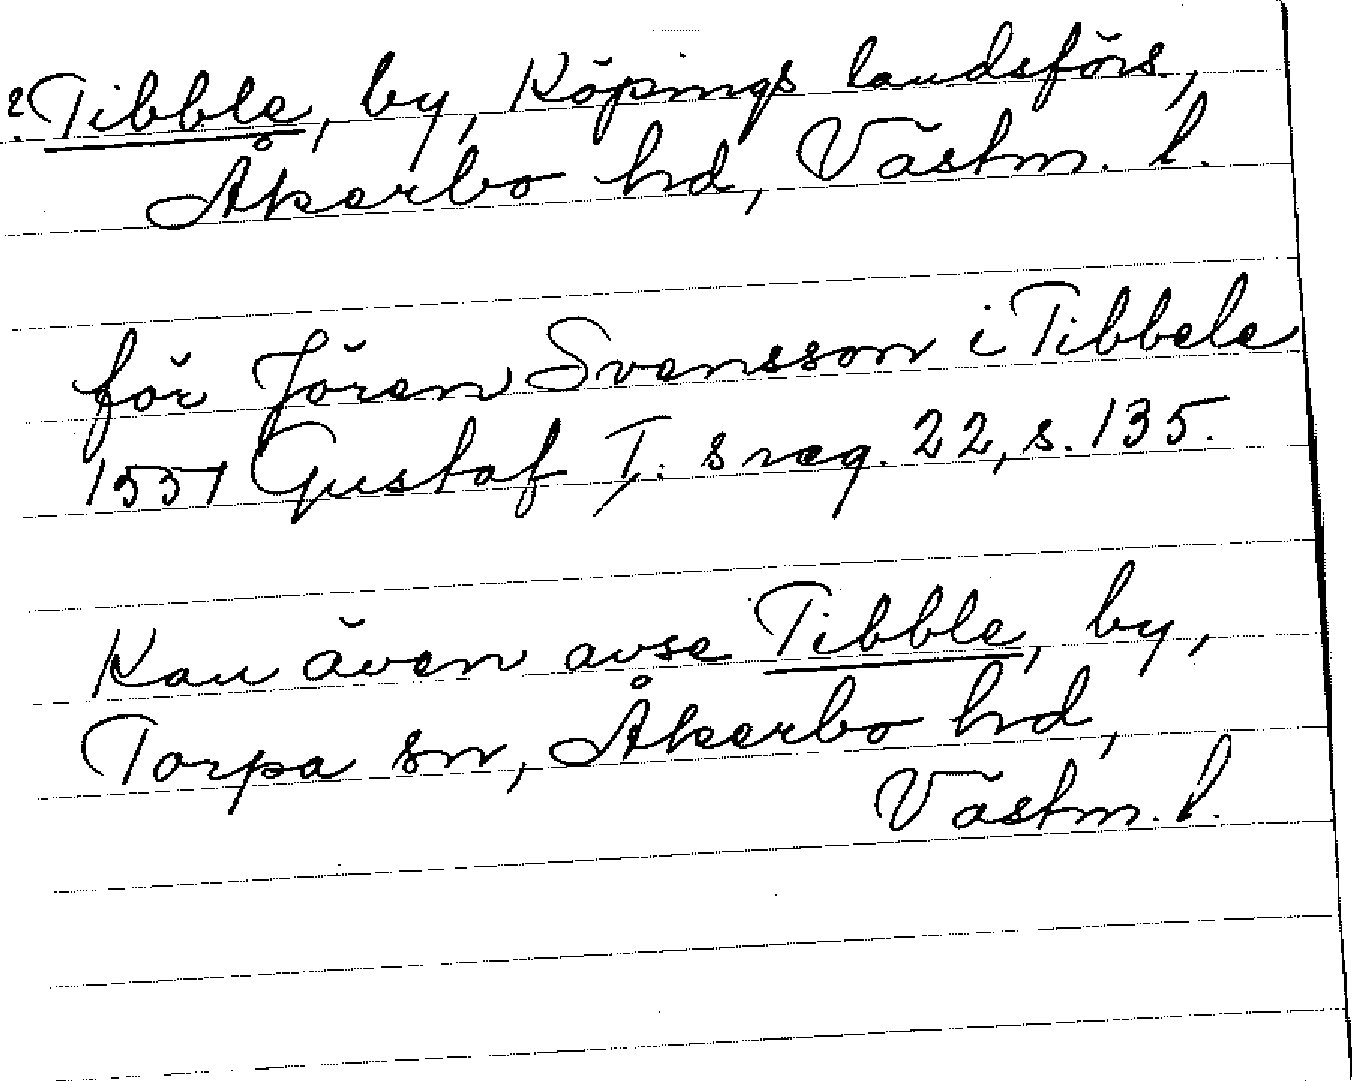 ? Tibble, by, Köpings landsförs,
Åkerbo hd, Västm. l.
för Jören Svensson i Tibbele
1551 Gustaf I:s reg. 22, s. 135.
Kan även avse Tibble, by,
Torpa sn, Åkerbo hd,
Västm. l.